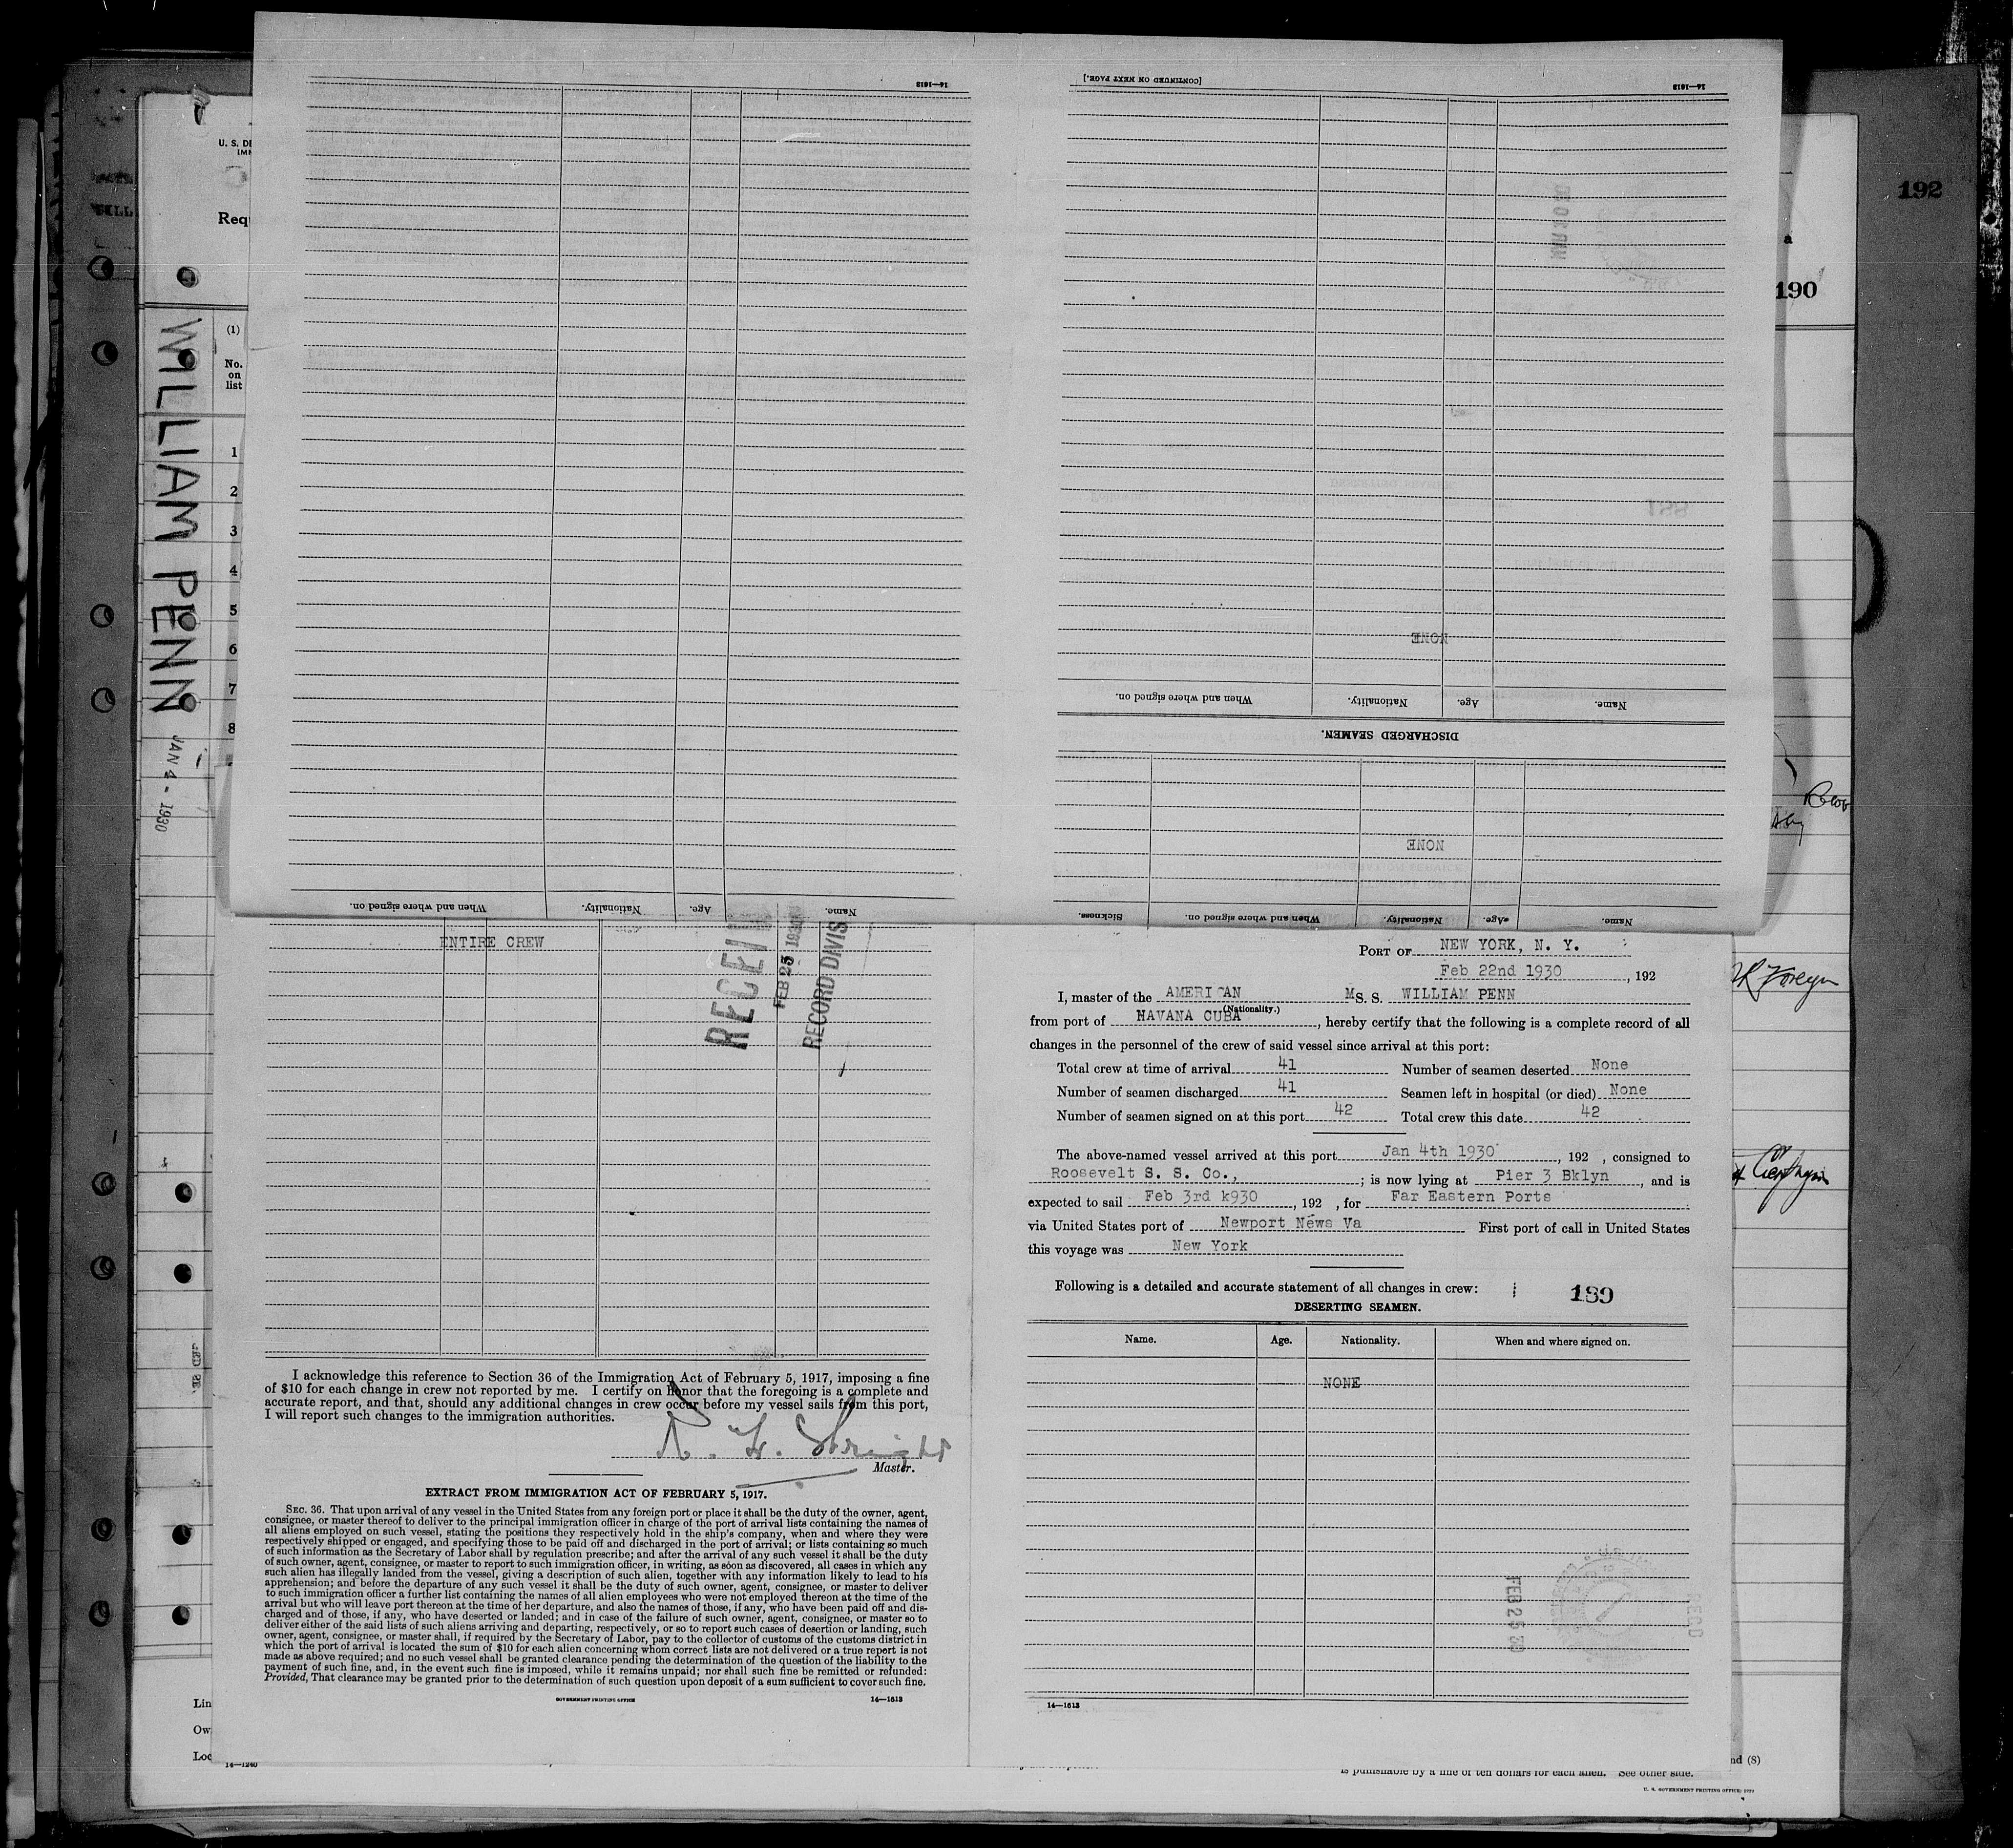 14—1613
[CONTINUED ON NEXT PAGE.]
14—1613
U. S. DE
IMM
Req
192
190
a
(1)
No.
on
list
1
2
3
4
5
6
7
8
WILLIAM PENN
JAN 4 - 1930
NONE
When and where signed on.
Nationality.
Age.
Name.
DISCHARGED SEAMEN.
NONE
Sickness.
When and where signed on.
Nationality.
Age.
Name.
When and where signed on.
Nationality.
Age.
Name.
ENTIRE CREW
RECEIV
FEB 25 1930
RECORD DIVIS
I acknowledge this reference to Section 36 of the Immigration Act of February 5, 1917, imposing a fine
of $10 for each change in crew not reported by me. I certify on honor that the foregoing is a complete and
accurate report, and that, should any additional changes in crew occur before my vessel sails from this port,
I will report such changes to the immigration authorities.
Master.
EXTRACT FROM IMMIGRATION ACT OF FEBRUARY 5, 1917.
SEC. 36. That upon arrival of any vessel in the United States from any foreign port or place it shall be the duty of the owner, agent,
consignee, or master thereof to deliver to the principal immigration officer in charge of the port of arrival lists containing the names of
all aliens employed on such vessel, stating the positions they respectively hold in the ship's company, when and where they were
respectively shipped or engaged, and specifying those to be paid off and discharged in the port of arrival; or lists containing so much
of such information as the Secretary of Labor shall by regulation prescribe; and after the arrival of any such vessel it shall be the duty
of such owner, agent, consignee, or master to report to such immigration officer, in writing, as soon as discovered, all cases in which any
such alien has illegally landed from the vessel, giving a description of such alien, together with any information likely to lead to his
apprehension; and before the departure of any such vessel it shall be the duty of such owner, agent, consignee, or master to deliver
to such immigration officer a further list containing the names of all alien employees who were not employed thereon at the time of the
arrival but who will leave port thereon at the time of her departure, and also the names of those, if any, who have been paid off and dis-
charged and of those, if any, who have deserted or landed; and in case of the failure of such owner, agent, consignee, or master so to
deliver either of the said lists of such aliens arriving and departing, respectively, or so to report such cases of desertion or landing, such
owner, agent, consignee, or master shall, if required by the Secretary of Labor, pay to the collector of customs of the customs district in
which the port of arrival is located the sum of $10 for each alien concerning whom correct lists are not delivered or a true report is not
made as above required; and no such vessel shall be granted clearance pending the determination of the question of the liability to the
payment of such fine, and, in the event such fine is imposed, while it remains unpaid; nor shall such fine be remitted or refunded:
Provided, That clearance may be granted prior to the determination of such question upon deposit of a sum sufficient to cover such fine.
GOVERNMENT PRINTING OFFICE 14—1613
PORT OF NEW YORK, N. Y.
Feb 22nd 1930, 192
I, master of the AMERICAN MS. S. WILLIAM PENN
(Nationality.)
from port of HAVANA CUBA, hereby certify that the following is a complete record of all
changes in the personnel of the crew of said vessel since arrival at this port:
Total crew at time of arrival 41 Number of seamen deserted None
Number of seamen discharged 41 Seamen left in hospital (or died) None
Number of seamen signed on at this port 42 Total crew this date 42
The above-named vessel arrived at this port Jan 4th 1930, 192 , consigned to
Roosevelt S. S. Co., ; is now lying at Pier 3 Bklyn, and is
expected to sail Feb 3rd k930, 192 , for Far Eastern Ports
via United States port of Newport News Va First port of call in United States
this voyage was New York
Following is a detailed and accurate statement of all changes in crew: 189
DESERTING SEAMEN.
Name. Age. Nationality. When and where signed on.
NONE
FEB 25 30
REC'D
14—1613
Lin
Ow
Loc
14—1240
nd (8)
is punishable by a fine of ten dollars for each alien. See other side.
U. S. GOVERNMENT PRINTING OFFICE: 1929